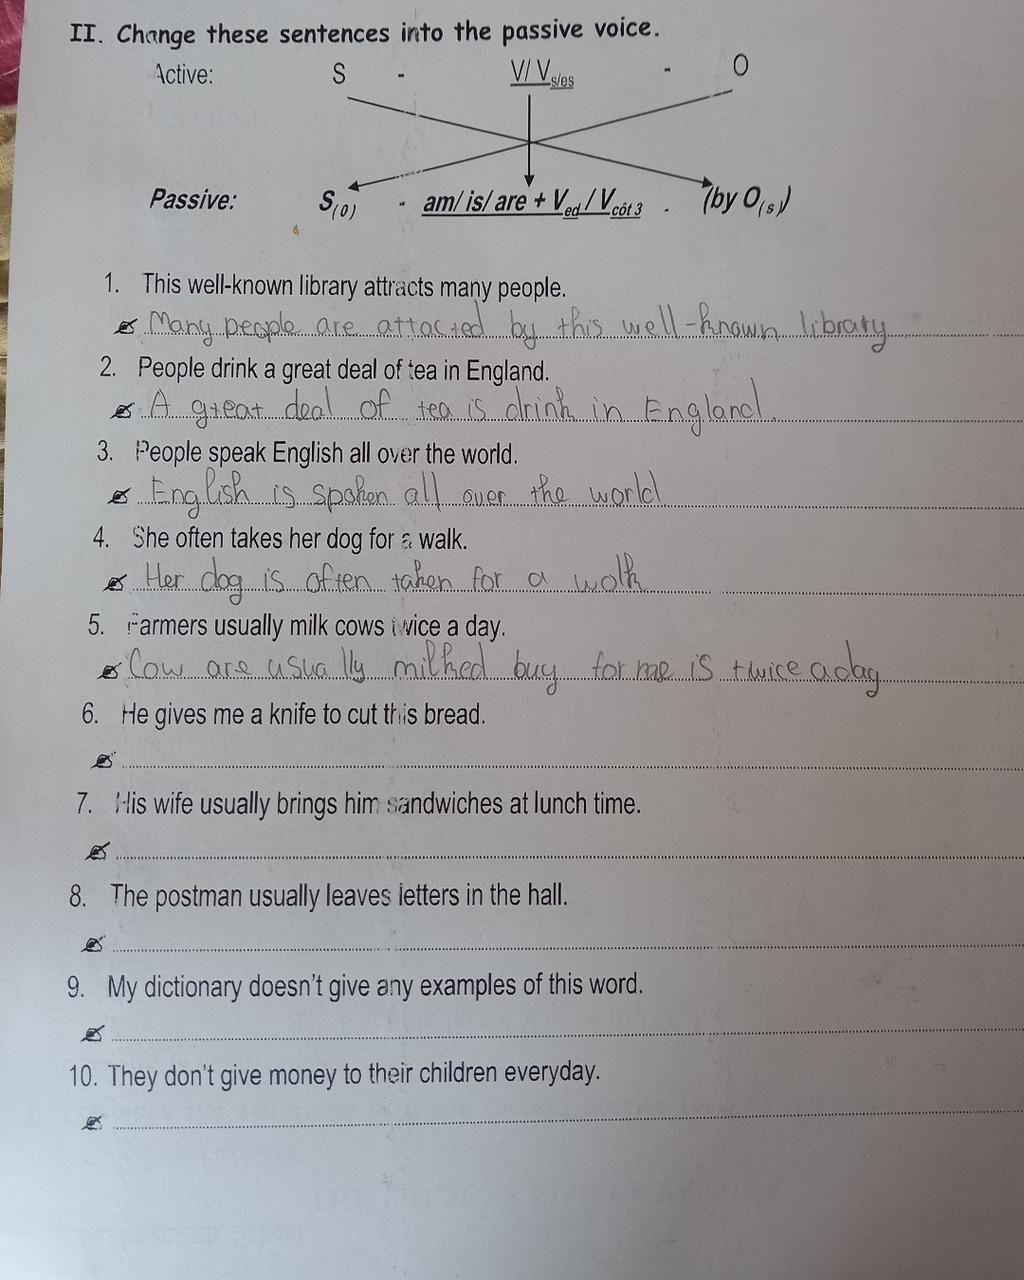 II. Change these sentences into the passive voice.
Active: S - V/ Vs/es - O
Passive: S(O) - am/ is/ are + Ved / Vcột 3 - (by O(s))
1. This well-known library attracts many people.
Many people are attacted by this well-known library
2. People drink a great deal of tea in England.
A great deal of tea is drink in England.
3. People speak English all over the world.
English is spoken all over the world
4. She often takes her dog for a walk.
Her dog is often taken for a wolk
5. Farmers usually milk cows twice a day.
Cow are usually milked buy for me is twice a day
6. He gives me a knife to cut this bread.
7. His wife usually brings him sandwiches at lunch time.
8. The postman usually leaves letters in the hall.
9. My dictionary doesn't give any examples of this word.
10. They don't give money to their children everyday.